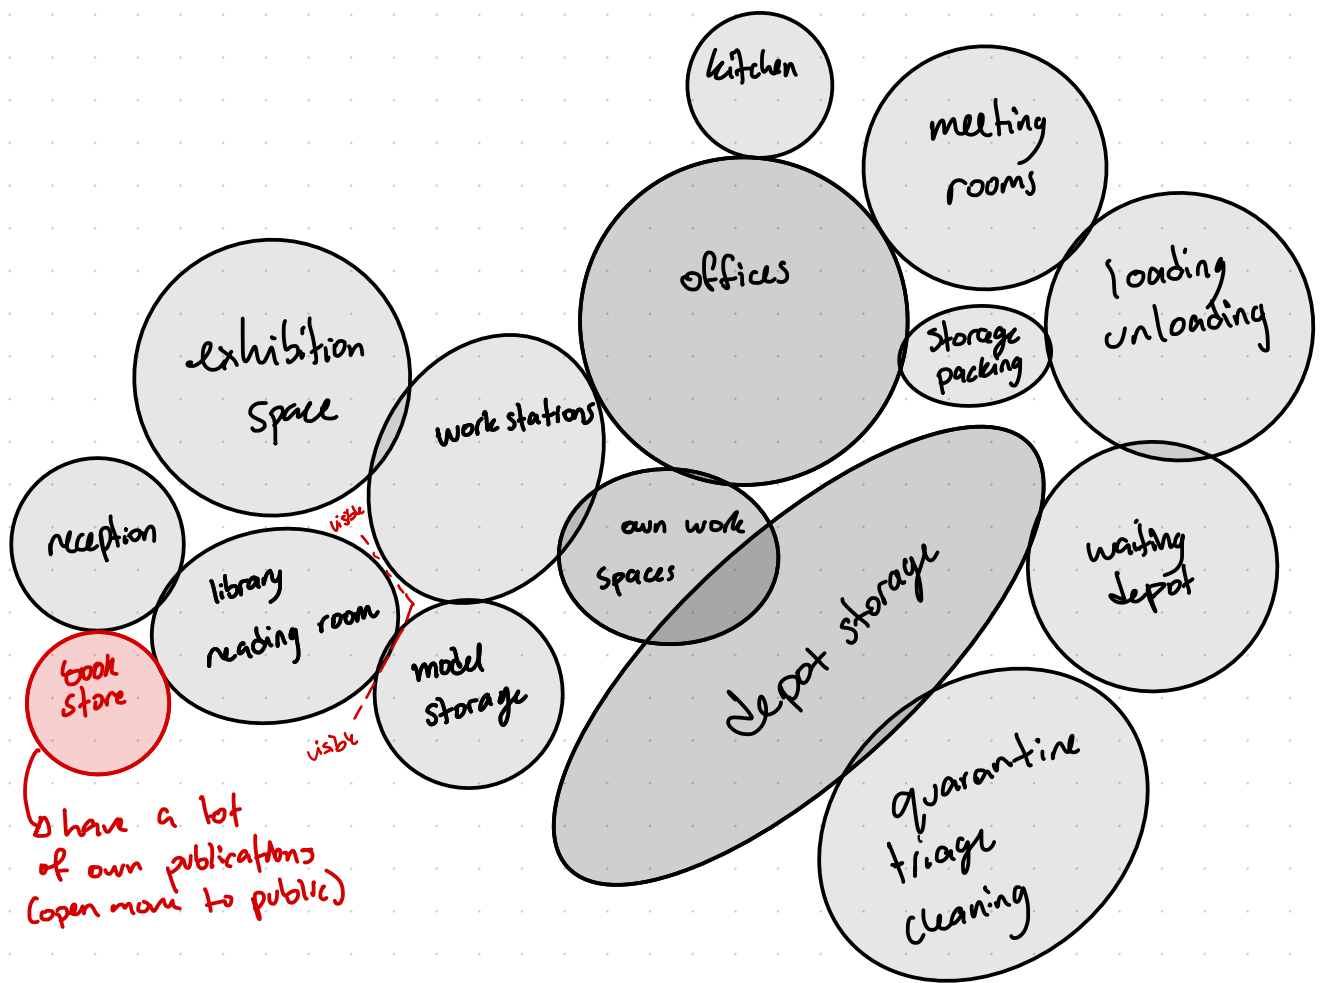 kitchen
meeting
rooms
offices
loading
unloading
storage
packing
exhibition
space
work stations
reception
visible
own work
spaces
waiting
depot
library
reading room
model
storage
depot storage
book
store
visible
quarantine
triage
cleaning
have a lot
of own publications
(open more to public)